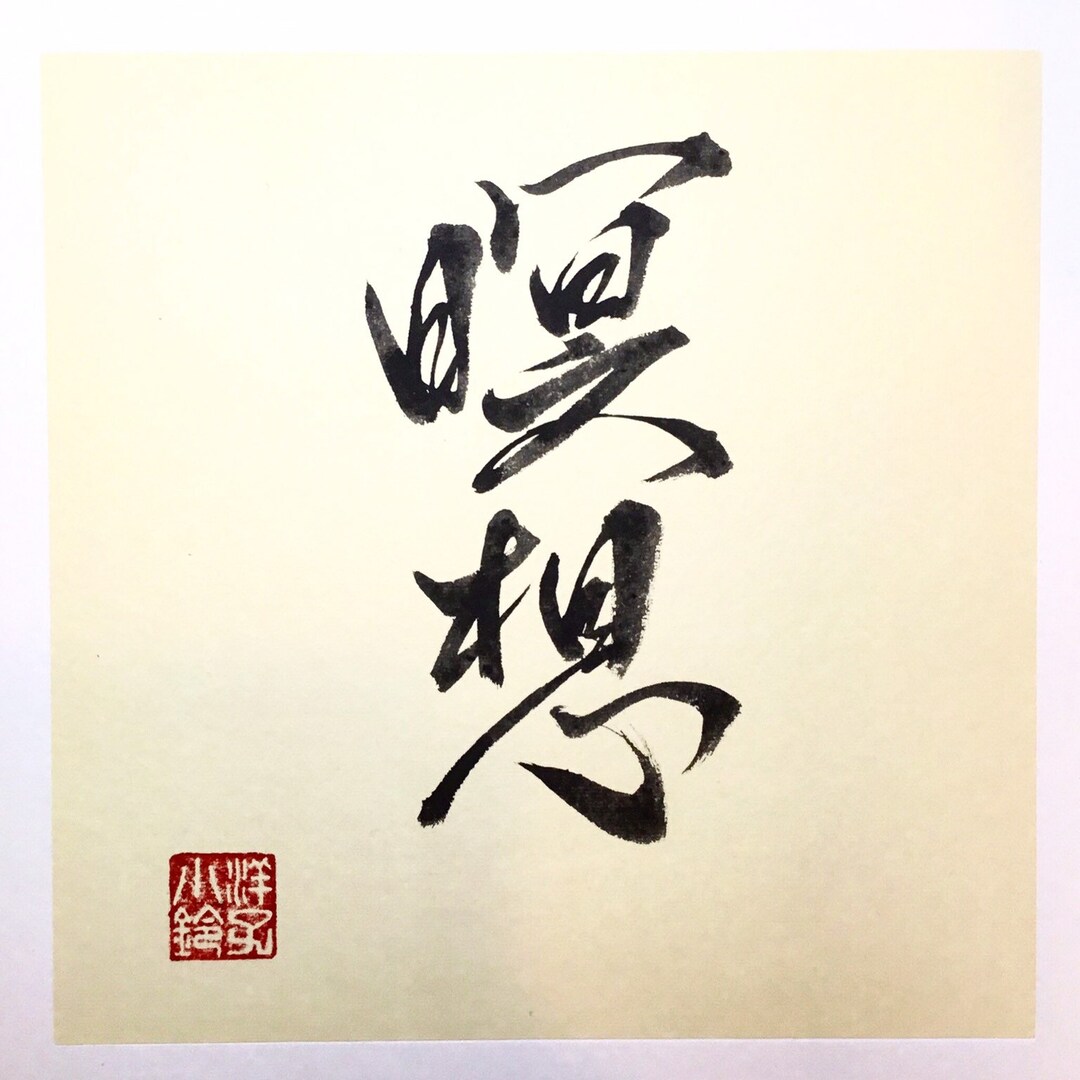 瞑想
洋子
小鈴